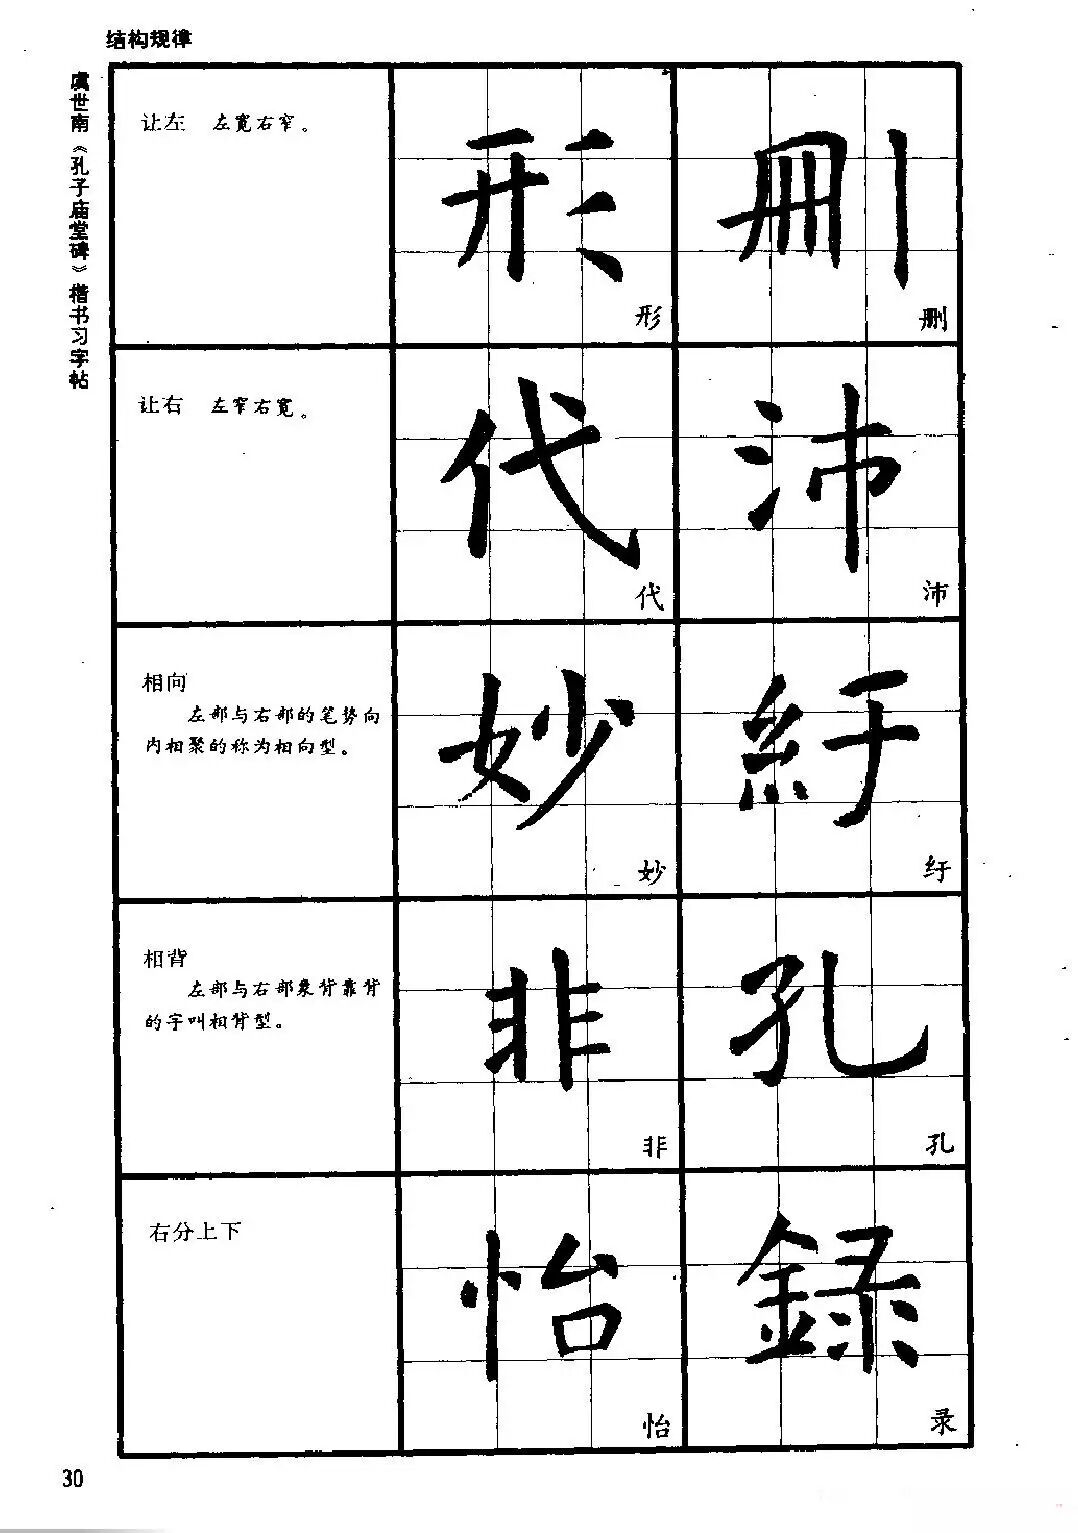 结构规律
虞世南《孔子庙堂碑》楷书习字帖
让左 左宽右窄。
形 刪
形 删
让右 左窄右宽。
代 沛
代 沛
相向
左部与右部的笔势向
内相聚的称为相向型。
妙 紆
妙 纡
相背
左部与右部象背靠背
的字叫相背型。
非 孔
非 孔
右分上下
怡 録
怡 录
30